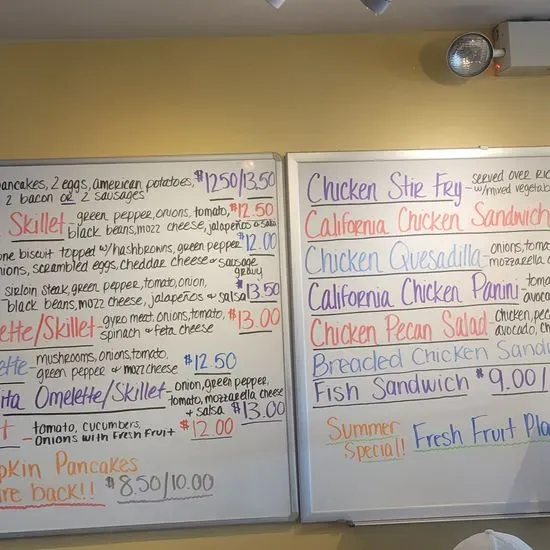 ancakes, 2 eggs, american potatoes, $12.50/13.50
2 bacon or 2 sausages
Skillet - green pepper, onions, tomato, $12.50
black beans, mozz cheese, jalapeños & salsa
one biscuit topped w/hashbrowns, green pepper $12.00
nions, scrambled eggs, cheddar cheese & sausage gravy
sirloin steak, green pepper, tomato, onion, $13.50
black beans, mozz cheese, jalapeños & salsa
lette/Skillet - gyro meat, onions, tomato, $13.00
spinach & feta cheese
ette - mushrooms, onions, tomato, $12.50
green pepper & mozz cheese
ita Omelette/Skillet - onion, green pepper,
tomato, mozzarella cheese
& salsa $13.00
t - tomato, cucumbers, $12.00
onions with Fresh Fruit
pkin Pancakes
re back!! $8.50/10.00
Chicken Stir Fry - served over ric
w/mixed vegetab
California Chicken Sandwich
Chicken Quesadilla - onions, toma
mozzarella c
California Chicken Panini - toma
avoca
Chicken Pecan Salad - chicken, pec
avocado, ch
Breaded Chicken Sandw
Fish Sandwich $9.00/
Summer Special! Fresh Fruit Pla